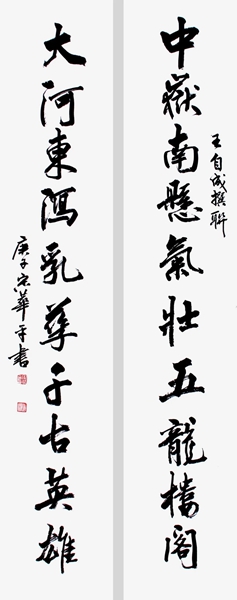 中嶽南懸氣壯五龍樓閣
王自成撰聯
大河東瀉乳孳千古英雄
庚子宋華平書